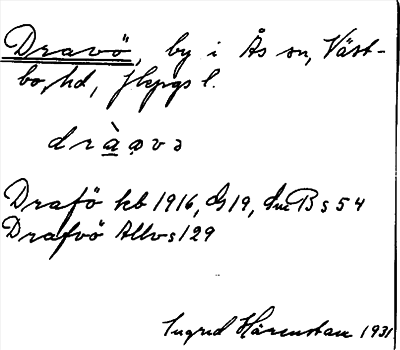 Dravö, by i Ås sn, Väst-
bo hd, Jkpgs l.
dràa̤və
Drafö kb 1916, G19, B s 54
Drafvö Allvs129
Ingrid Hårenstam 1931